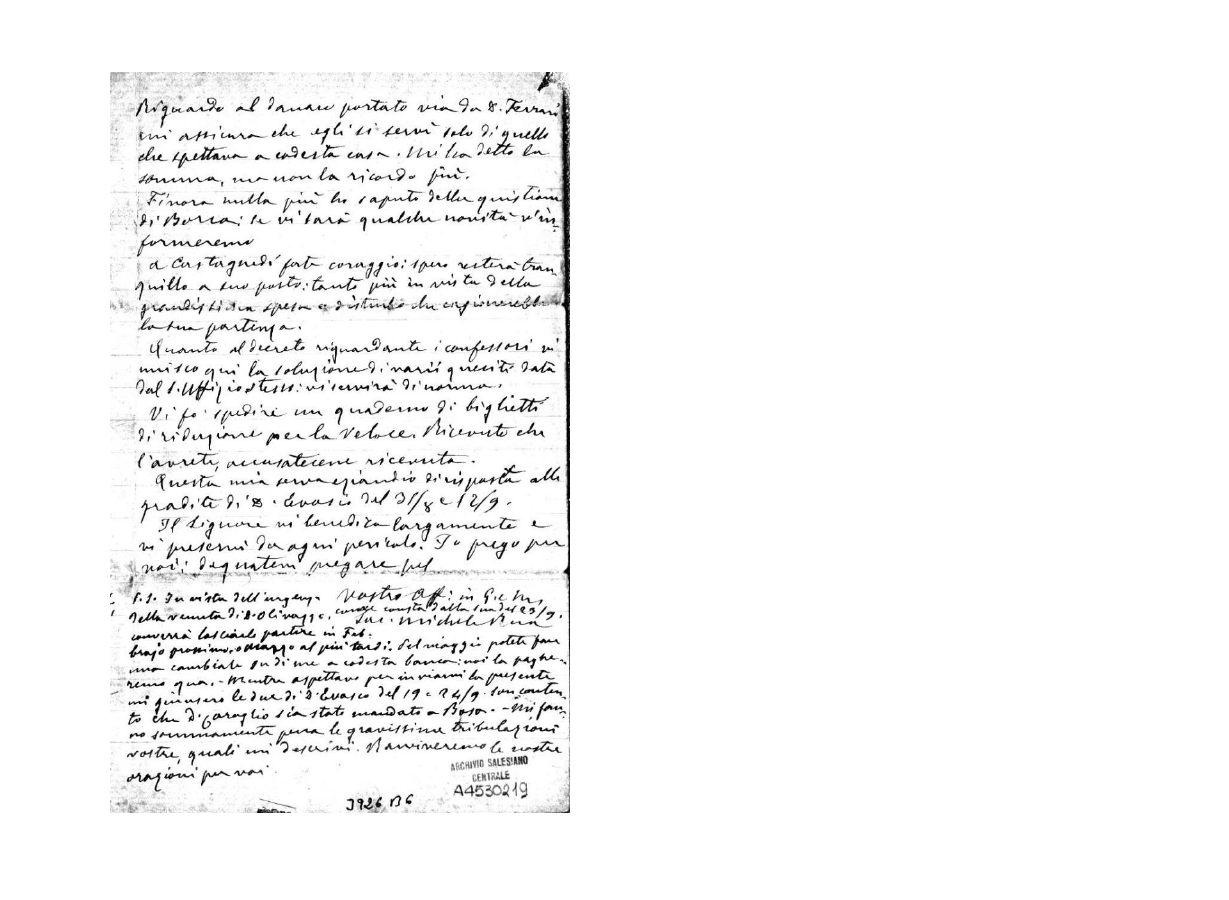 Riguardo al danaro portato via da D. Ferrari
mi assicura che egli si servì solo di quello
che spettava a codesta casa. Mi ha detto la
somma, ma non la ricordo più.
Finora nulla più ho saputo della quistione
di Borsa: se vi sarà qualche novità v'in-
formeremo
a Castagnedi fate coraggio: spero resterà tran
quillo a suo posto: tanto più in vista della
grandissima spesa e disturbo che cagionerebbe
la sua partenza.
Quanto al decreto riguardante i confessori vi
unisco qui la soluzione di varii quesiti data
dal S. Uffizio stesso: vi servirà di norma.
Vi fo spedire un quaderno di biglietti
di riduzione per la Veloce. Ricevuto che
l'avrete, accusatecene ricevuta.
Questa mia serva eziandio di risposta alle
gradite di D. Evasio del 31/8 e 12/9.
Il Signore vi benedica largamente e
vi preservi da ogni pericolo. Io prego per
voi; degnatevi pregare pel
Vostro Aff: in G. e M.
Sac. Michele Rua
P.S. In vista dell'urgenza
della venuta di D. Olivazzo, come consta dalla sua del 23/9.
converrà lasciarlo partire in Feb-
brajo prossimo, o Marzo al più tardi. Pel viaggio potete fare
una cambiale su di me a codesta banca: noi la paghe-
remo qua. - Mentre aspettavo per inviarvi la presente
mi giunsero le due di D. Evasio del 19 e 24/9. Son conten-
to che D. Caraglio sia stato mandato a Bosa. - Mi fan-
no sommamente pena le gravissime tribulazioni
vostre, quali mi descrivi. Ravviveremo le nostre
orazioni per voi.
ARCHIVIO SALESIANO
CENTRALE
A4530219
3926 B6